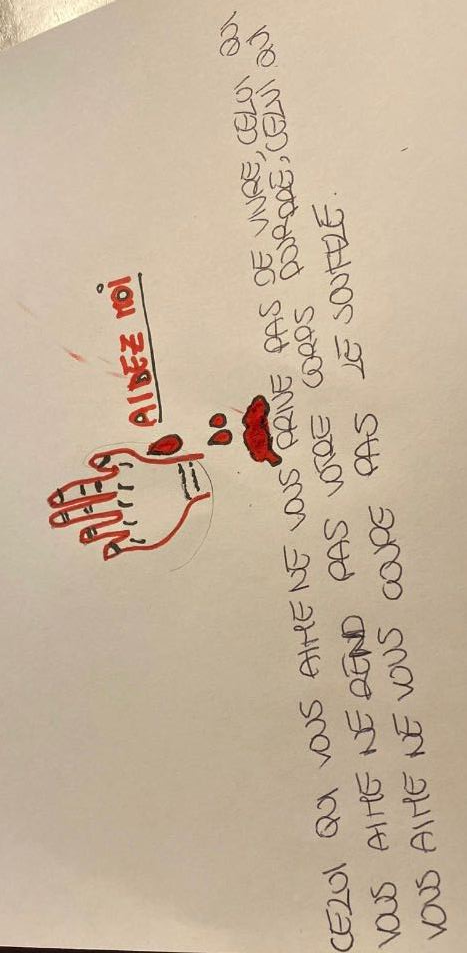 AIDEZ MOI
CELUI QUI VOUS AIME NE VOUS PRIVE PAS DE VIVRE, CELUI QUI,
VOUS AIME NE REND PAS VOTRE CORPS POURPRE, CELUI QUI
VOUS AIME NE VOUS COUPE PAS LE SOUFFLE.